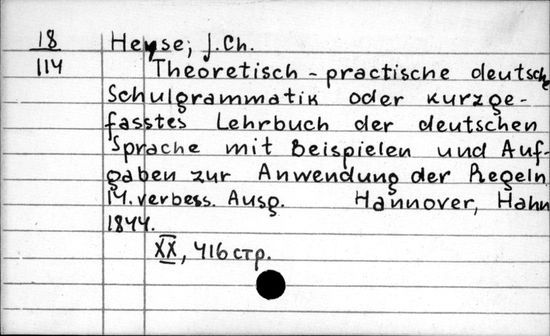 18
114
Heyse, J.Ch.
Theoretisch-practische deutsche
Schulgrammatik oder kurzge-
fasstes Lehrbuch der deutschen
Sprache mit Beispielen und Auf-
gaben zur Anwendung der Regeln
14. verbess. Ausg. Hannover, Hahn
1844.
XX, 416 стр.